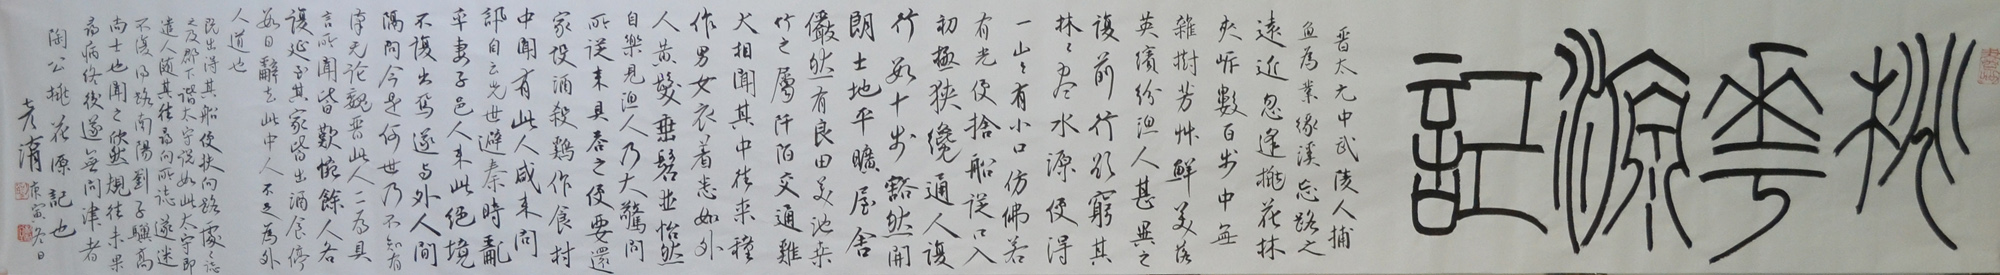 桃花源記
晉太元中武陵人捕
魚為業緣溪忘路之
遠近忽逢桃花林
夾岸數百步中無
雜樹芳艸鮮美落
英繽紛漁人甚異之
復前行欲窮其
林林盡水源便得
一山山有小口仿佛若
有光便捨船從口入
初極狹纔通人復
行數十步豁然開
朗土地平曠屋舍
儼然有良田美池桑
竹之屬阡陌交通雞
犬相聞其中往來種
作男女衣著悉如外
人黃髮垂髫並怡然
自樂見漁人乃大驚問
所從來具答之便要還
家設酒殺鷄作食村
中聞有此人咸來問
訊自云先世避秦時亂
率妻子邑人來此絕境
不復出焉遂與外人間
隔問今是何世乃不知有
漢无論魏晉此人一一為具
言所聞皆歎惋餘人各
復延至其家皆出酒食停
數日辭去此中人不足為外
人道也
既出得其船便扶向路處處誌
之及郡下詣太守說如此太守即
遣人隨其往尋向所誌遂迷
不復得路南陽劉子驥高
尚士也聞之欣然規往未果
尋病終後遂無問津者
陶公桃花源記也
庚寅冬日